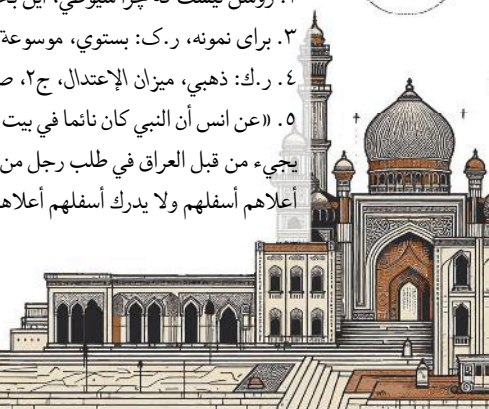 ۳. برای نمونه، ر.ک: بستوي، موسوعة
٤. ر.ك: ذهبي، ميزان الإعتدال، ج٢، ص
٥. «عن انس أن النبي كان نائما في بيت
يجيء من قبل العراق في طلب رجل من
أعلاهم أسفلهم ولا يدرك أسفلهم أعلاهم